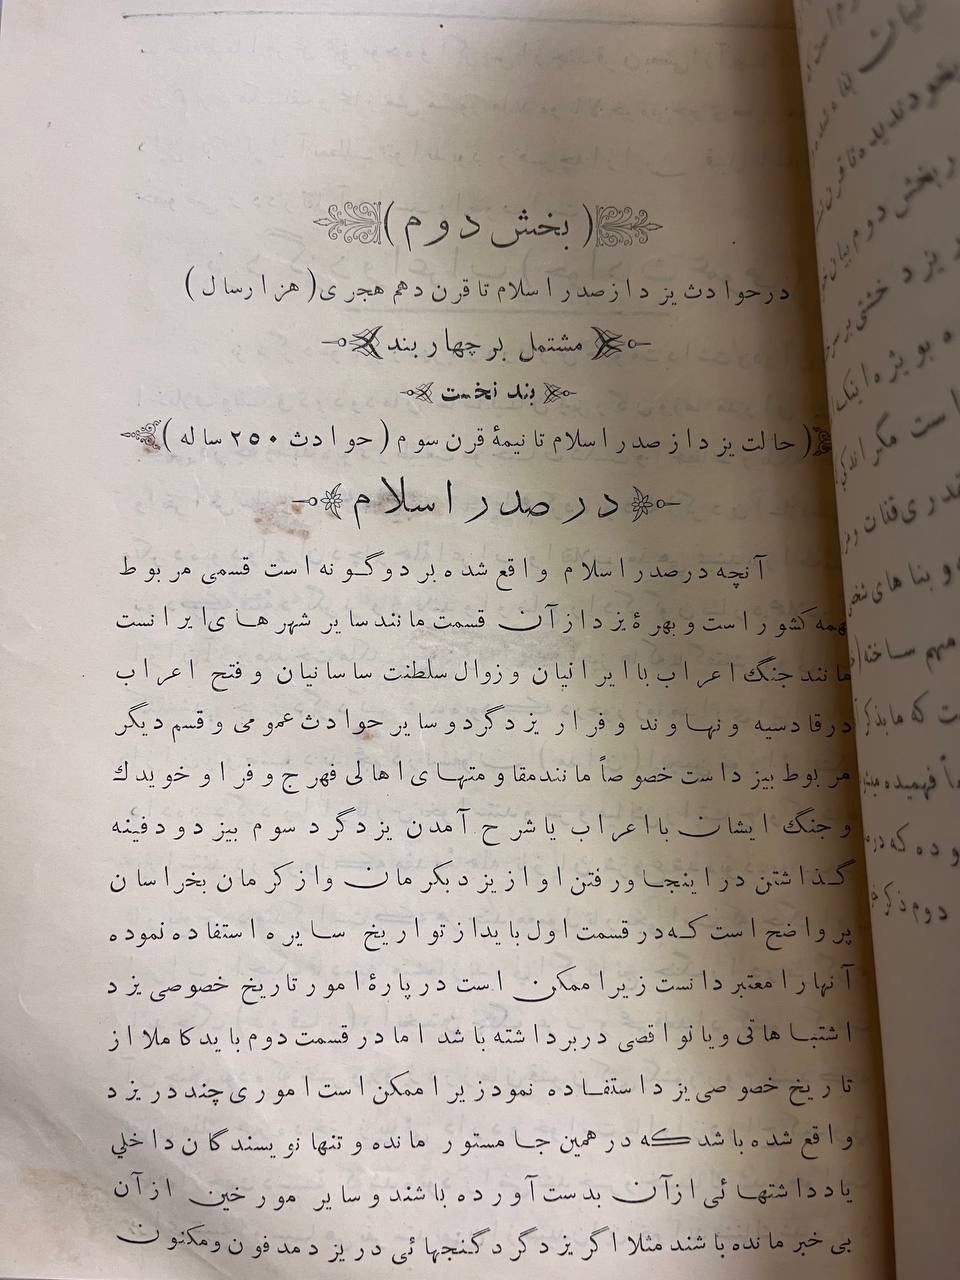 (بخش دوم)
در حوادث یزد از صدر اسلام تا قرن دهم هجری (هزار سال)
مشتمل بر چهار بند
بند نخست
(حالت یزد از صدر اسلام تا نیمهٔ قرن سوم (حوادث ۲۵۰ ساله)
در صدر اسلام
آنچه در صدر اسلام واقع شده بر دو گونه است قسمی مربوط
بهمه کشور است و بهرهٔ یزد از آن قسمت مانند سایر شهرهای ایرانست
مانند جنگ اعراب با ایرانیان و زوال سلطنت ساسانیان و فتح اعراب
در قادسیه و نهاوند و فرار یزدگرد و سایر حوادث عمومی و قسم دیگر
مربوط بیزد است خصوصاً مانند مقاومتهای اهالی فهرج و فرا و خویدك
و جنگ ایشان با اعراب یا شرح آمدن یزدگرد سوم بیزد و دفینه
گذاشتن در اینجا و رفتن او از یزد بکرمان و از کرمان بخراسان
پر واضح است که در قسمت اول باید از تواریخ سایره استفاده نموده
آنها را معتبر دانست زیرا ممکن است در پارهٔ امور تاریخ خصوصی یزد
اشتباهاتی و یا نواقصی در بر داشته باشد اما در قسمت دوم باید کاملا از
تاریخ خصوصی یزد استفاده نمود زیرا ممکن است اموری چند در یزد
واقع شده باشد که در همین جا مستور مانده و تنها نویسندگان داخلی
یادداشتهائی از آن بدست آورده باشند و سایر مورخین از آن
بی خبر مانده باشند مثلا اگر یزدگرد گنجهائی در یزد مدفون و مکنون